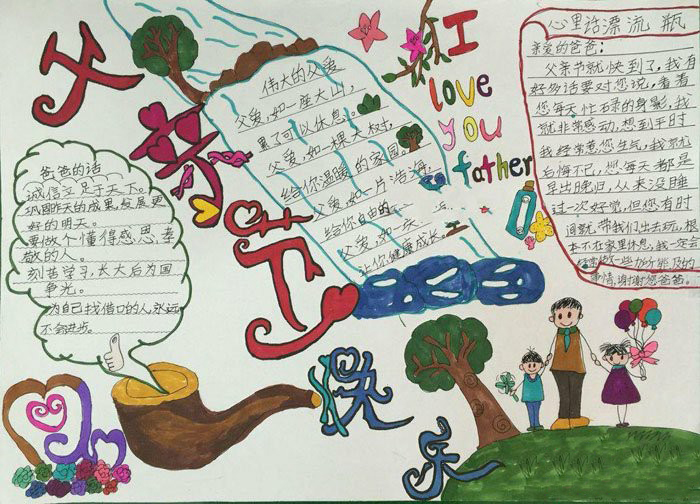 父亲节快乐
I
love
you
father
伟大的父爱
父爱,如一座大山,
累了可以休息。
父爱,如一棵大树,
给你温暖的家园。
父爱,如一片浩海,
给你自由的
父爱,如一
让你健康成长。
爸爸的话
诚信立足于天下。
巩固昨天的成果,发展更
好的明天。
要做个懂得感恩,奉
献的人。
刻苦学习,长大后为国
争光。
为自己找借口的人,永远
不会进步。
心里话漂流瓶
亲爱的爸爸:
父亲节就快到了,我有
好多话要对您说,看着
您每天忙碌的身影,我
就非常感动,想到平时
我经常惹您生气,我就
后悔不已,您每天都是
早出晚归,从来没睡
过一次好觉,但您有时
间就带我们出去玩,根
本不在家里休息,我一定会
做一些力所能及的
事情,谢谢您爸爸。